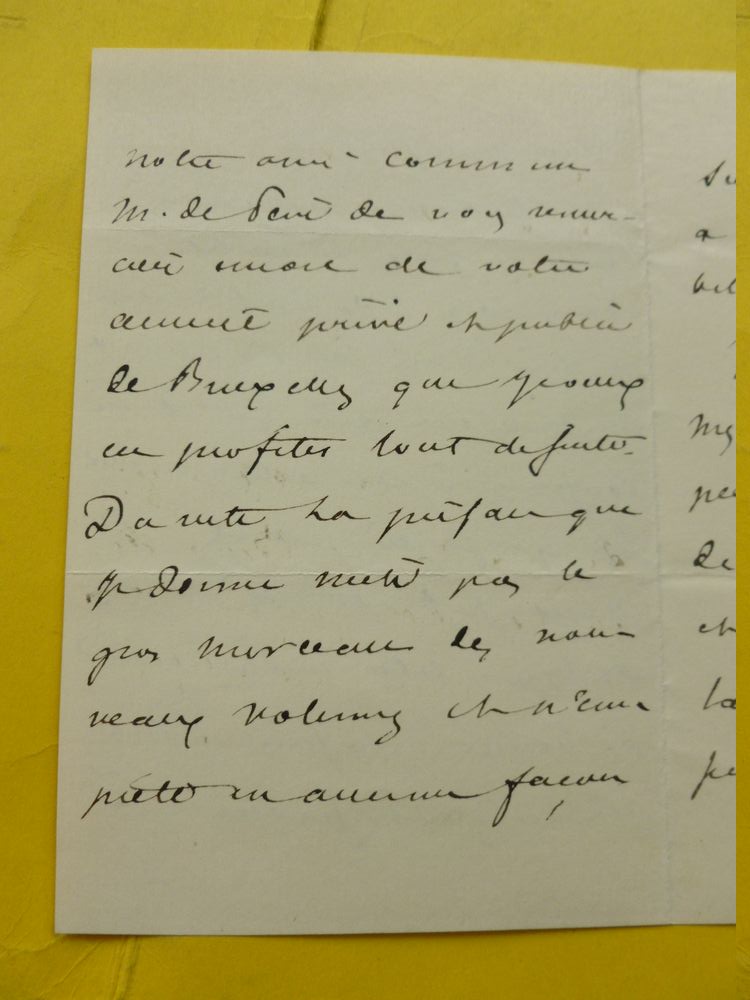 notre ami commun
M. de de vous remer-
cier encore de votre
amitié privé et public
de Bruxelles que je veux
en profiter tout de suite.
D'a la préface que
je donne n'est pas le
gros morceau des nou-
veaux volumes et n'em-
piète en aucune façon
su
a
my
pe
de
et
la
pe